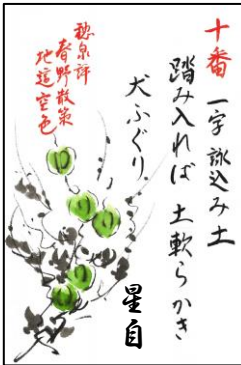 十番 一字 詠込み土
踏み入れば 土軟らかき
犬ふぐり
星自
泉評
春野散策
地這空色